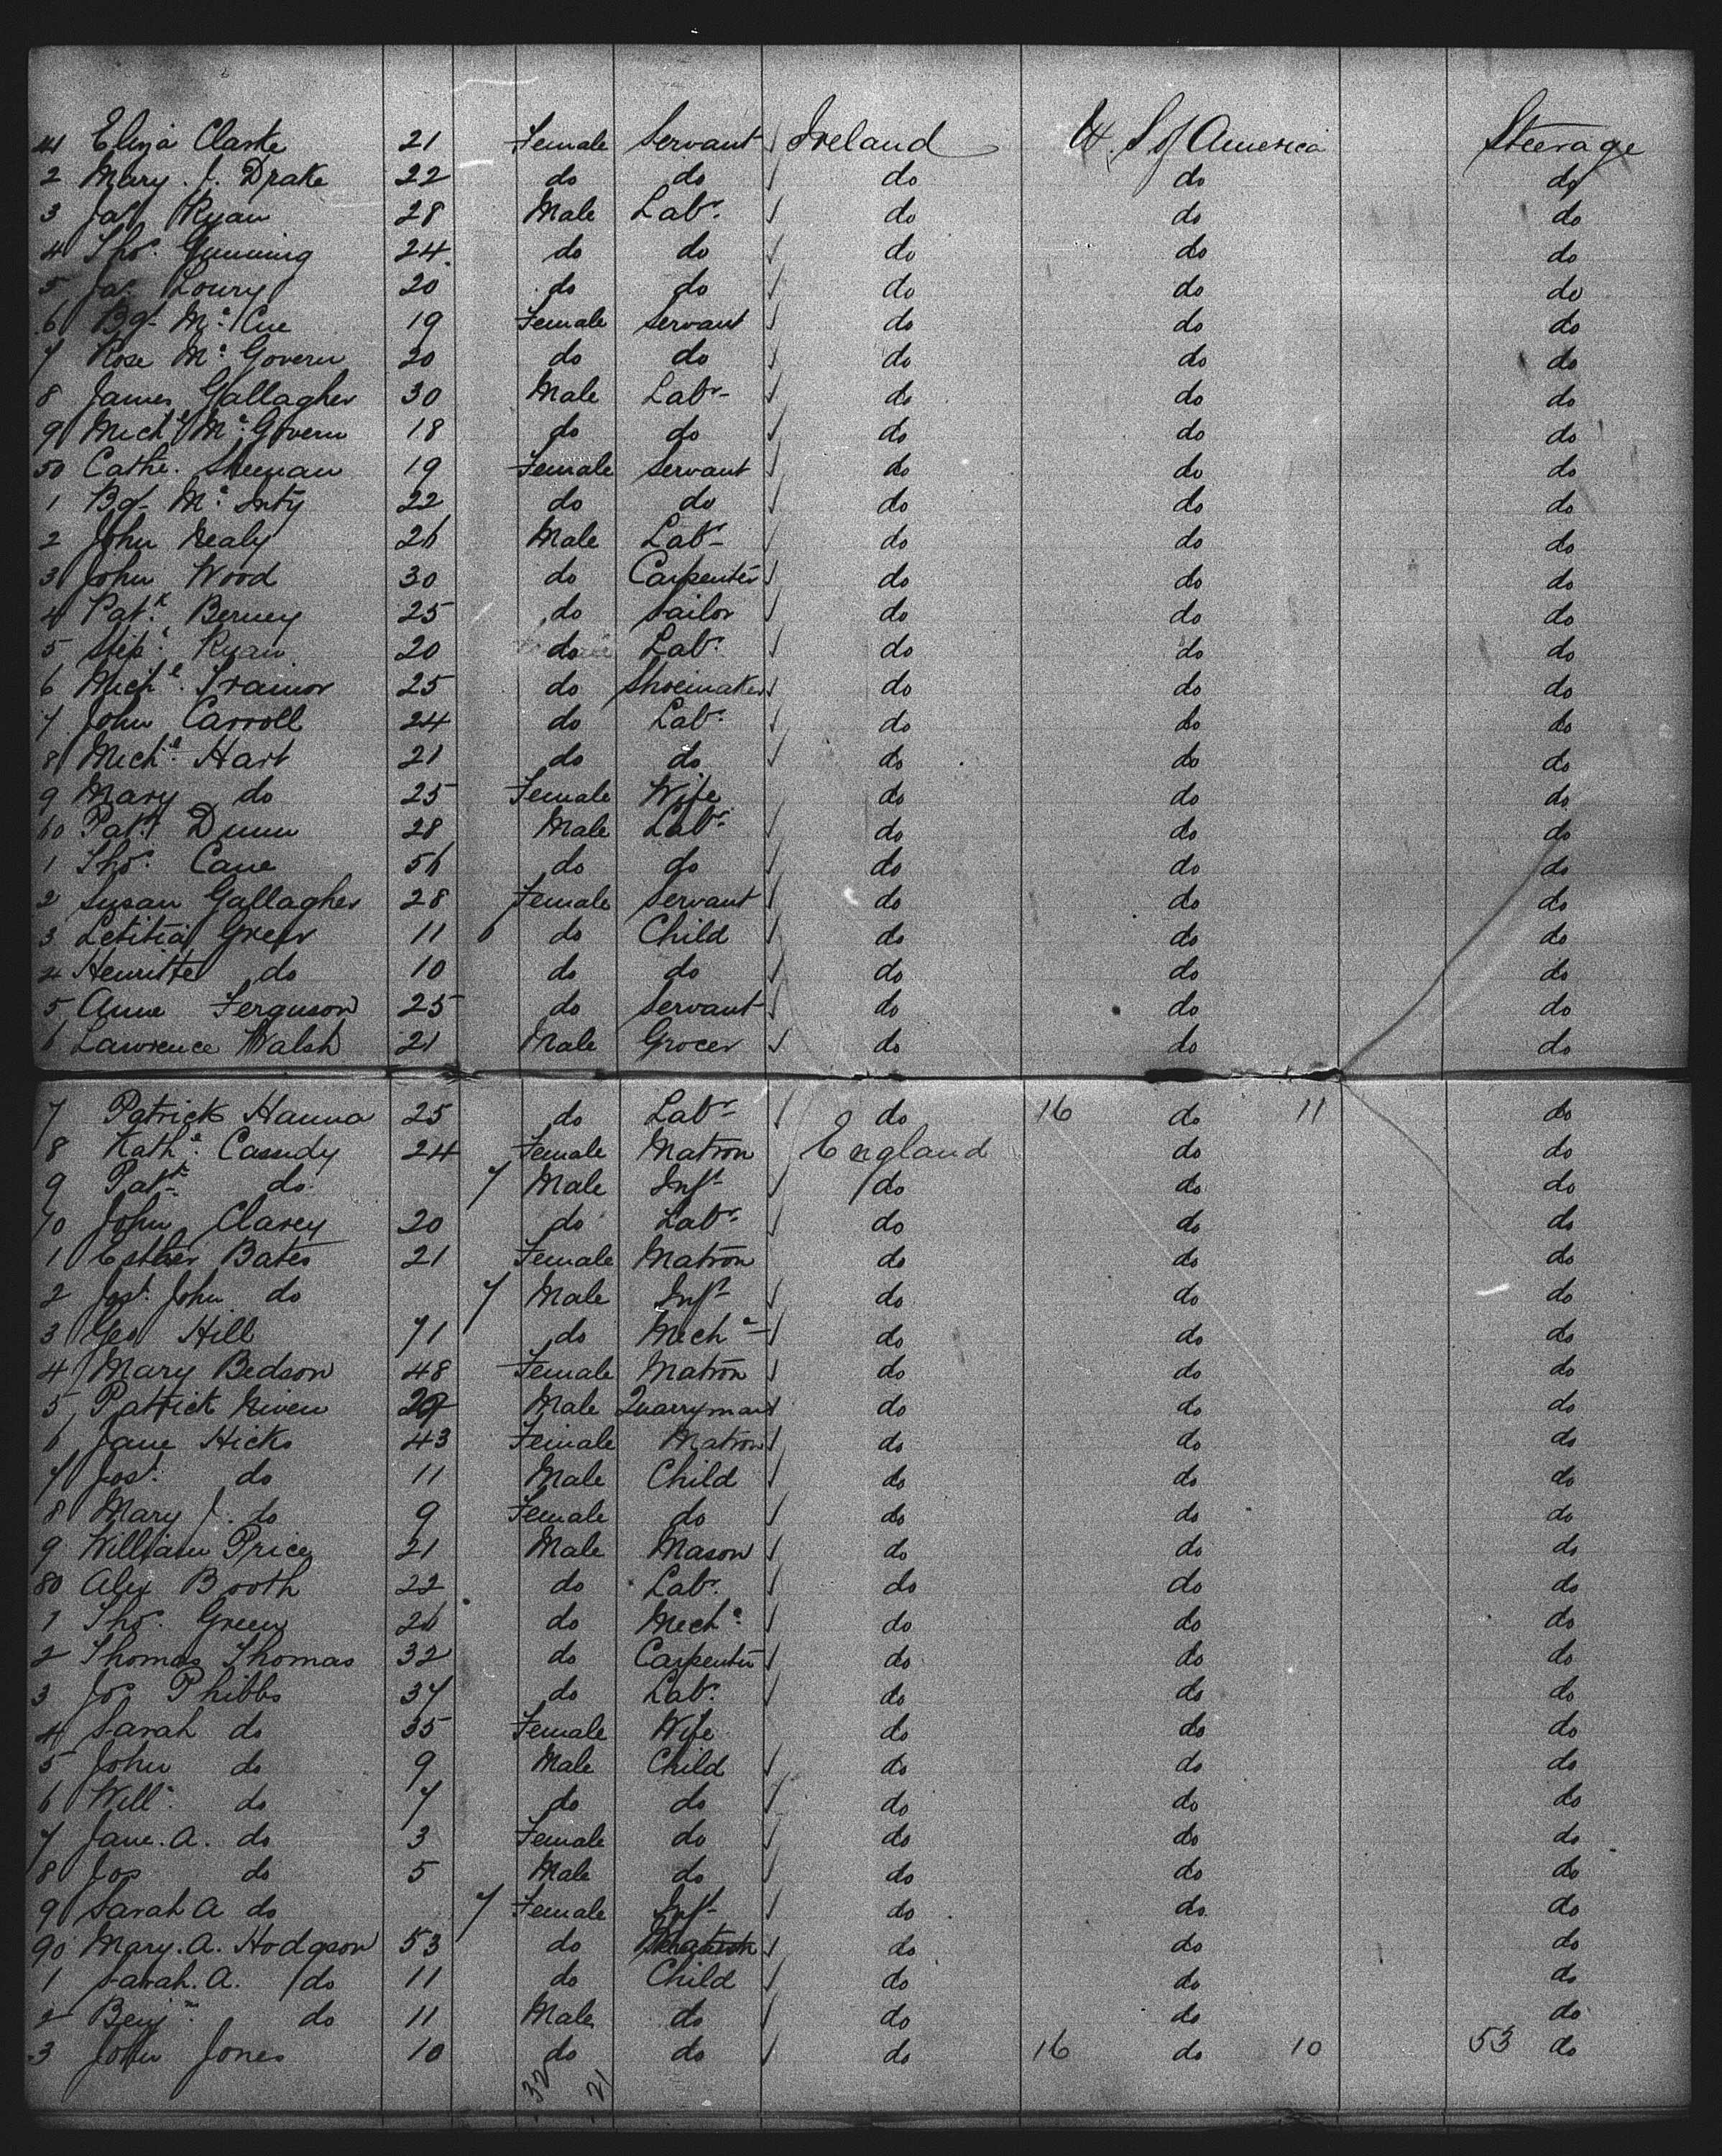 41 Eliza Clarke 21 Female Servant Ireland U. S of America Steerage
2 Mary. J. Drake 22 do do do do do
3 Jas Ryan 28 Male Labr do do do
4 Thos. Gunning 24 do do do do do
5 Jas Loury 20 do do do do do
6 Bgt Mc Cue 19 Female Servant do do do
7 Rose Mc Govern 20 do do do do do
8 James Gallagher 30 Male Labr do do do
9 Michl Mc Govern 18 do do do do do
50 Cathe. Sheenan 19 Female Servant do do do
1 Bgt Mc Inty 22 do do do do do
2 John Nealy 26 Male Labr do do do
3 John Wood 30 do Carpenter do do do
4 Patk Berney 25 do Sailor do do do
5 Stepn Ryan 20 do Labr do do do
6 Michl Trainor 25 do Shoemaker do do do
7 John Carroll 24 do Labr do do do
8 Michl Hart 21 do do do do do
9 Mary do 25 Female Wife do do do
60 Patk Dunn 28 Male Labr do do do
1 Thos. Cane 56 do do do do do
2 Susan Gallagher 28 Female Servant do do do
3 Letitia Greer 11 do Child do do do
4 Henritte do 10 do do do do do
5 Anne Ferguson 25 do Servant do do do
6 Lawrence Walsh 21 Male Grocer do do do
7 Patrick Hanna 25 do Labr do 16 do 11 do
8 Kathe Cassidy 24 Female Matron England do do
9 Patk do 7 Male Inft do do do
70 John Clarey 20 do Labr do do do
1 Esther Bates 21 Female Matron do do do
2 Josh John do 7 Male Inft do do do
3 Geo Hill 71 do Mechc do do do
4 Mary Bedson 48 Female Matron do do do
5 Patrick Niven Male Quarryman do do do
6 Jane Hicks 43 Female Matron do do do
7 Josh do 11 Male Child do do do
8 Mary J. do 9 Female do do do do
9 William Price 21 Male Mason do do do
80 Alex Booth 22 do Labr do do do
1 Thos. Green 26 do Mechc do do do
2 Thomas Thomas 32 do Carpenter do do do
3 Jos Phibbs 37 do Labr do do do
4 Sarah do 35 Female Wife do do do
5 John do 9 Male Child do do do
6 Willm do 7 do do do do do
7 Jane. A. do 3 Female do do do do
8 Jos do 5 Male do do do do
9 Sarah A do 7 Female Inft do do do
90 Mary. A. Hodgson 53 do Matron do do do
1 Sarah. A. do 11 do Child do do do
2 Benjn do 11 Male do do do do
3 John Jones 10 do do do 16 do 10 53 do
32 21